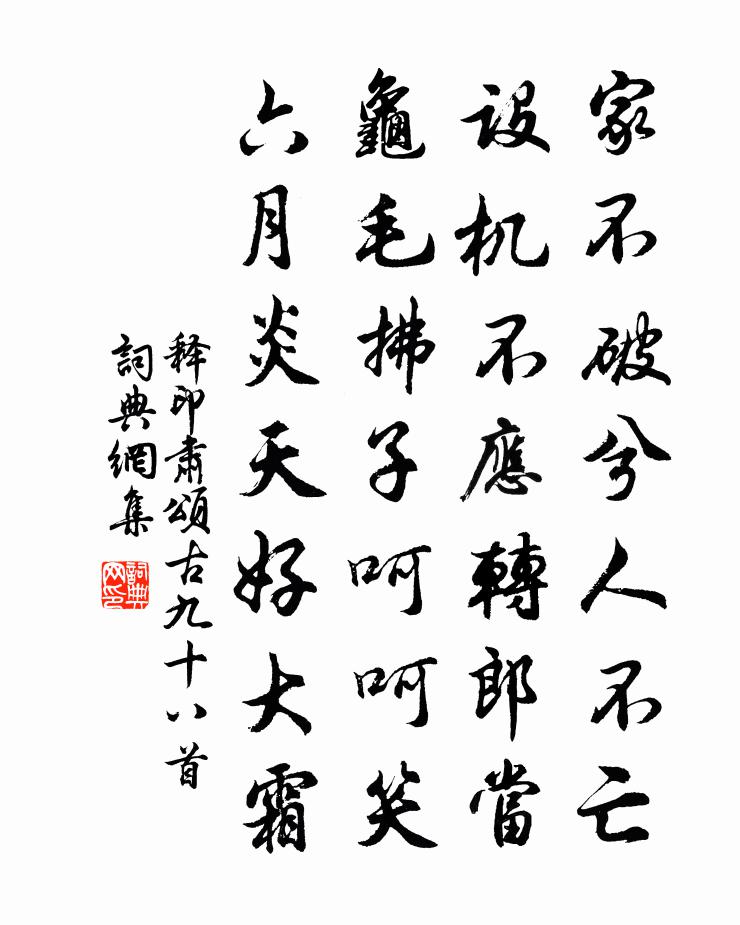 家不破兮人不亡
設机不應轉郎當
龜毛拂子呵呵笑
六月炎天好大霜
释印肅頌古九十八首
詞典網集
詞典网印